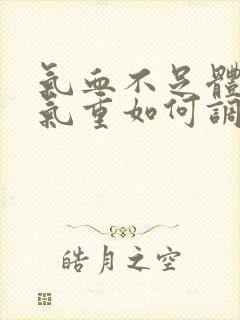 氣血不足體
氣重如何調
皓月之空